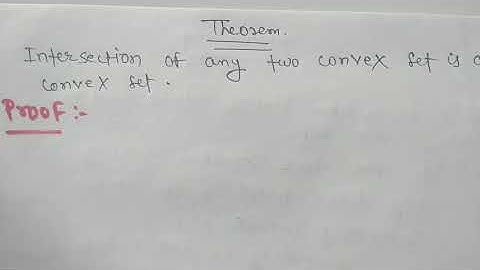 Theorem.
Intersection of any two convex set is a
convex set.
PROOF:-